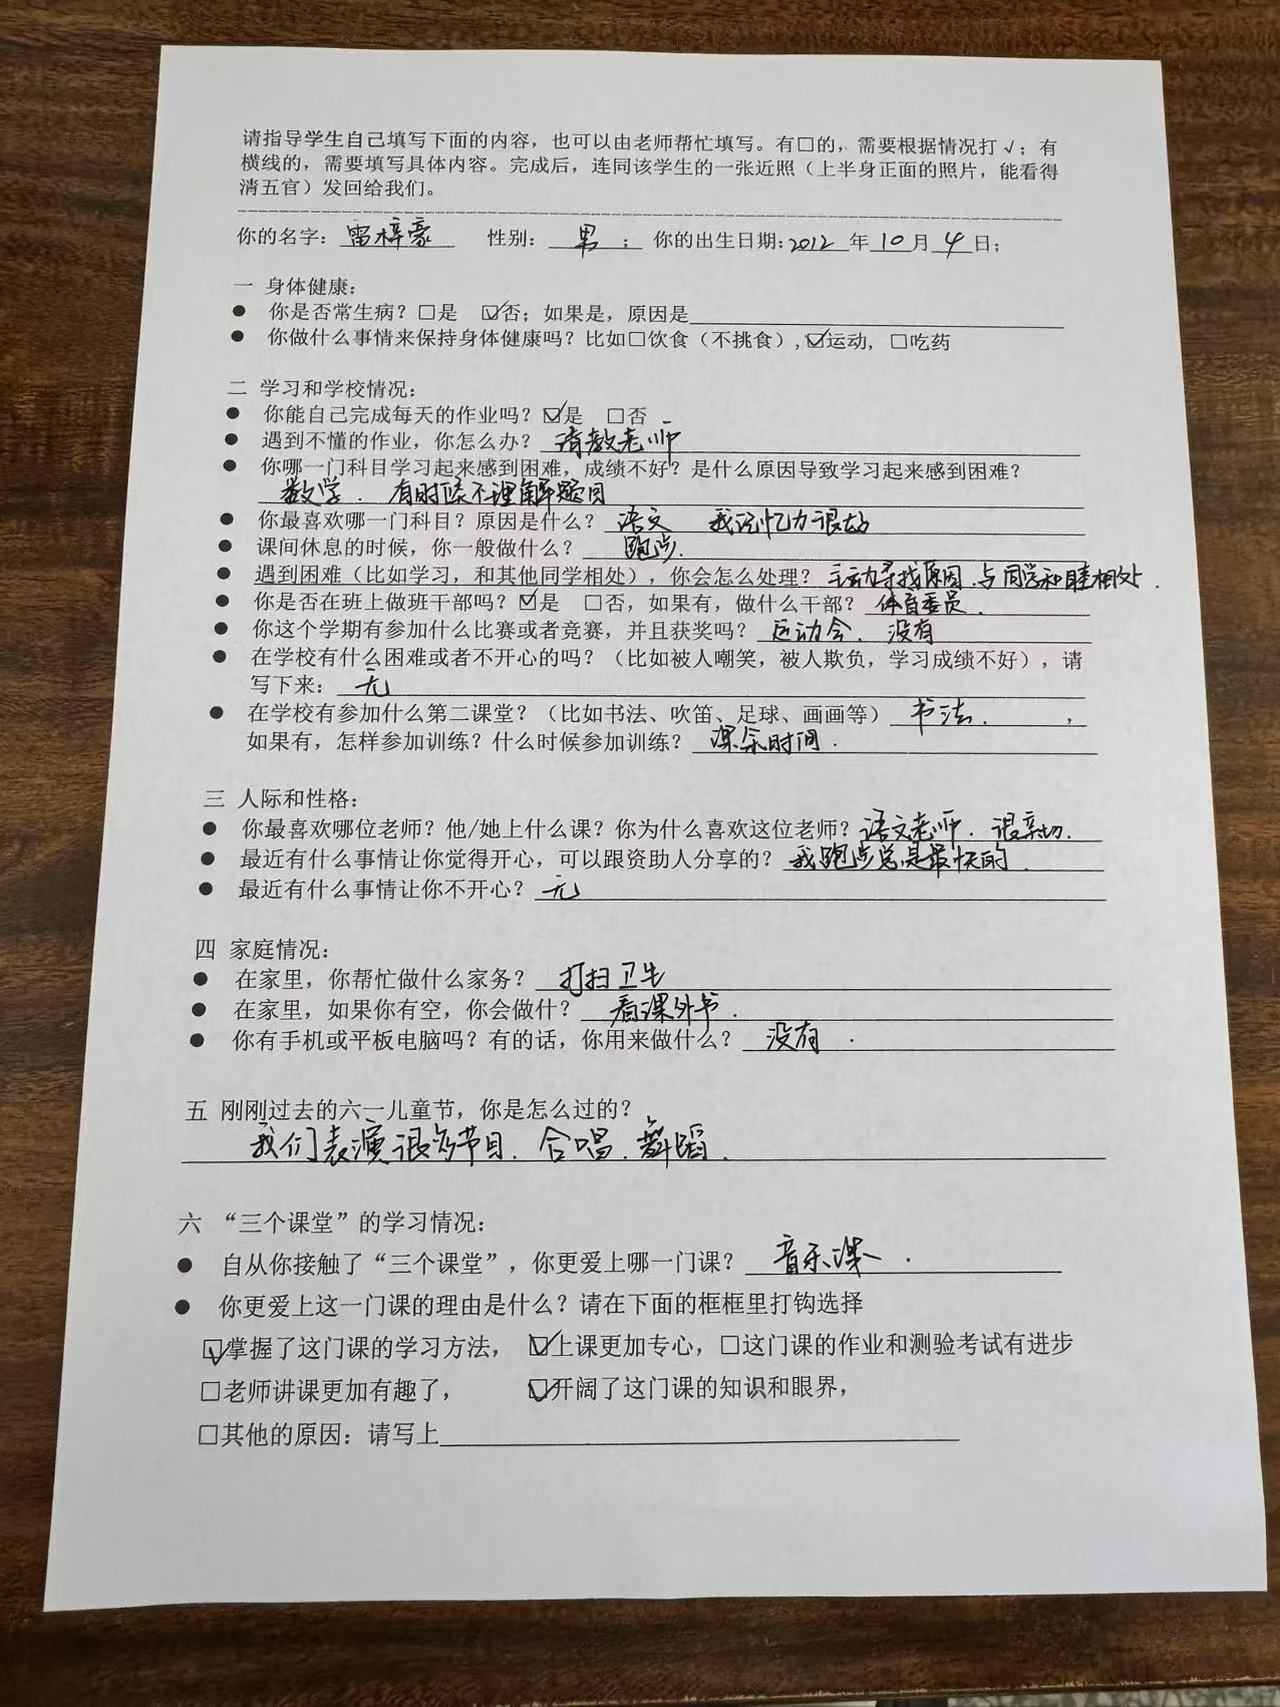 请指导学生自己填写下面的内容，也可以由老师帮忙填写。有□的，需要根据情况打√；有
横线的，需要填写具体内容。完成后，连同该学生的一张近照（上半身正面的照片，能看得
清五官）发回给我们。
你的名字：雷梓豪 性别：男；你的出生日期：2012年10月4日；
一 身体健康：
● 你是否常生病？□是 ☑否；如果是，原因是
● 你做什么事情来保持身体健康吗？比如□饮食（不挑食）,☑运动，□吃药
二 学习和学校情况：
● 你能自己完成每天的作业吗？☑是 □否
● 遇到不懂的作业，你怎么办？请教老师
● 你哪一门科目学习起来感到困难，成绩不好？是什么原因导致学习起来感到困难？
数学．有时候不理解题目
● 你最喜欢哪一门科目？原因是什么？语文 我记忆力很好
● 课间休息的时候，你一般做什么？跑步．
● 遇到困难（比如学习，和其他同学相处），你会怎么处理？主动寻找原因．与同学和睦相处．
● 你是否在班上做班干部吗？☑是 □否，如果有，做什么干部？体育委员．
● 你这个学期有参加什么比赛或者竞赛，并且获奖吗？运动会．没有
● 在学校有什么困难或者不开心的吗？（比如被人嘲笑，被人欺负，学习成绩不好），请
写下来：无
● 在学校有参加什么第二课堂？（比如书法、吹笛、足球、画画等）书法．，
如果有，怎样参加训练？什么时候参加训练？课余时间．
三 人际和性格：
● 你最喜欢哪位老师？他/她上什么课？你为什么喜欢这位老师？语文老师．很亲切．
● 最近有什么事情让你觉得开心，可以跟资助人分享的？我跑步总是最快的．
● 最近有什么事情让你不开心？无
四 家庭情况：
● 在家里，你帮忙做什么家务？打扫卫生
● 在家里，如果你有空，你会做什？看课外书．
● 你有手机或平板电脑吗？有的话，你用来做什么？没有．
五 刚刚过去的六一儿童节，你是怎么过的？
我们表演很多节目．合唱．舞蹈．
六 “三个课堂”的学习情况：
● 自从你接触了“三个课堂”，你更爱上哪一门课？音乐课．
● 你更爱上这一门课的理由是什么？请在下面的框框里打钩选择
☑掌握了这门课的学习方法，☑上课更加专心，□这门课的作业和测验考试有进步
□老师讲课更加有趣了，☑开阔了这门课的知识和眼界，
□其他的原因：请写上